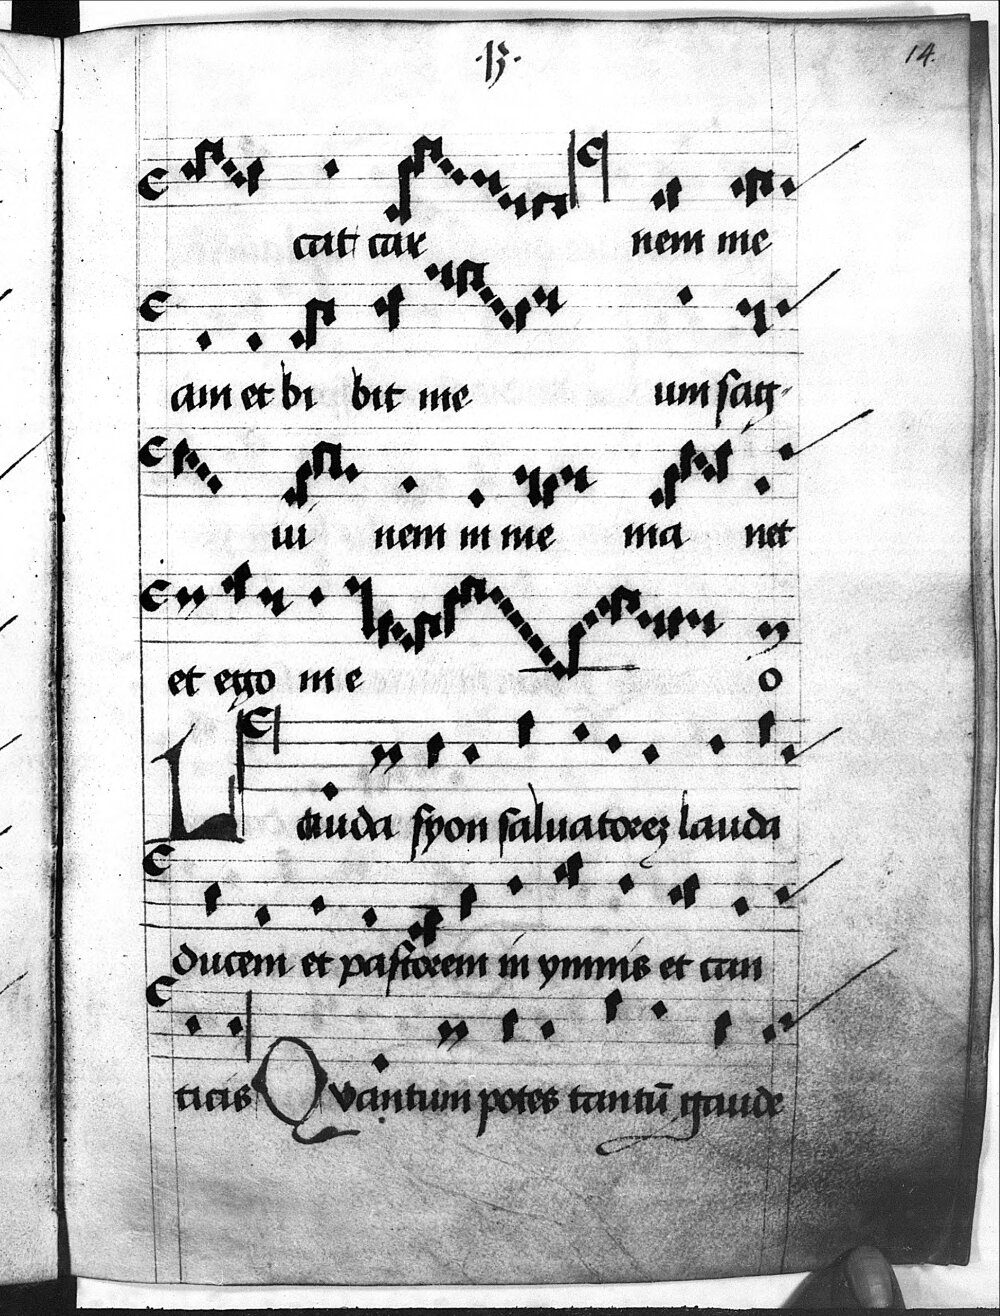 ·13·
14.
cat car nem me
am et bi bit me um sag
ui nem in me ma net
et ego in e o
Lauda syon saluatorez lauda
ducem et pastorem in ymnis et can
ticis Quantum potes tantū gaude